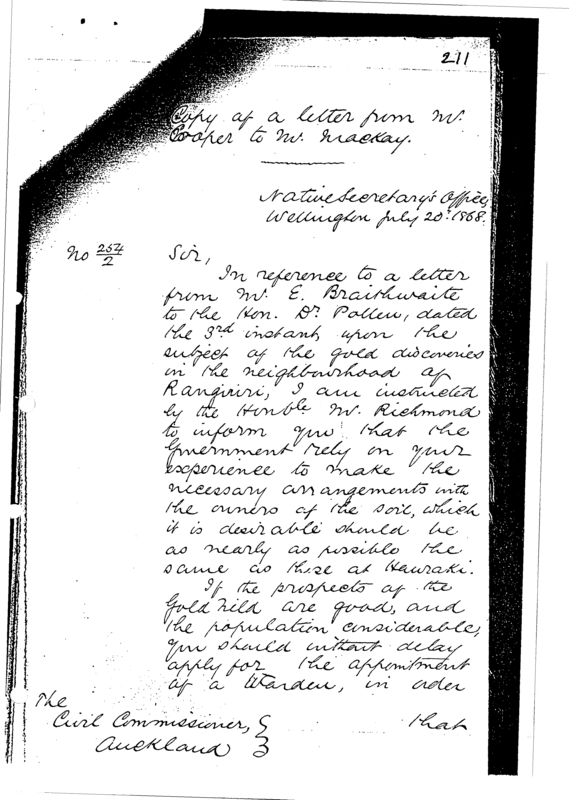 211
Copy of a letter from Mr.
Cooper to Mr. Mackay.
Native Secretary's Office,
Wellington July 20th 1868.
No 254/2
Sir,
In reference to a letter
from Mr. E. Braithwaite
to the Hon. Dr. Pollen, dated
the 3rd instant, upon the
subject of the gold discoveries
in the neighbourhood of
Rangiriri, I am instructed
by the Honble Mr. Richmond
to inform you that the
Government rely on your
experience to make the
necessary arrangements with
the owners of the soil, which
it is desirable should be
as nearly as possible the
same as those at Hauraki.
If the prospects of the
Gold Field are good, and
the population considerable,
you should without delay
apply for the appointment
of a Warden, in order
that
The
Civil Commissioner,
Auckland